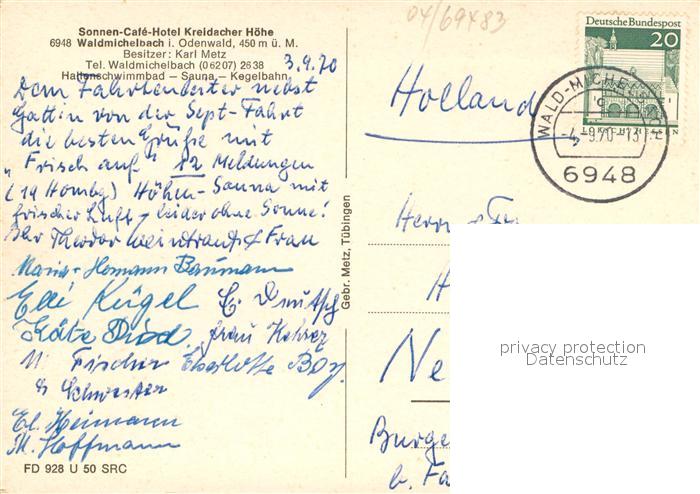 04/69483
Sonnen-Café-Hotel Kreidacher Höhe
6948 Waldmichelbach i. Odenwald, 450 m ü. M.
Besitzer: Karl Metz
Tel. Waldmichelbach (06207) 2638
Hallenschwimmbad – Sauna – Kegelbahn
3.9.70
Dem Fahrtenleiter nebst
Gattin von der Sept-Fahrt
die besten Grüße mit
"Frisch auf" 12 Meldungen
(14 Hombg) Höhen-Sauna mit
frischer Luft, leider ohne Sonne!
Ihr Theodor Weintraut & Frau
Maria + Hermann Baumann
Elli Kugel E. Deutsch
Käte Diod. Frau
M. Fischer Charlotte
& Schwester
El. Heimann
M. Hoffmann
FD 928 U 50 SRC
Gebr. Metz, Tübingen
Deutsche Bundespost
20
LORSCH/HESSEN
WALD-MICHELBACH
-4.-9.70-13
6948
Holland
Herrn & Fr
H
Ne
Burge
b. Fa
privacy protection
Datenschutz